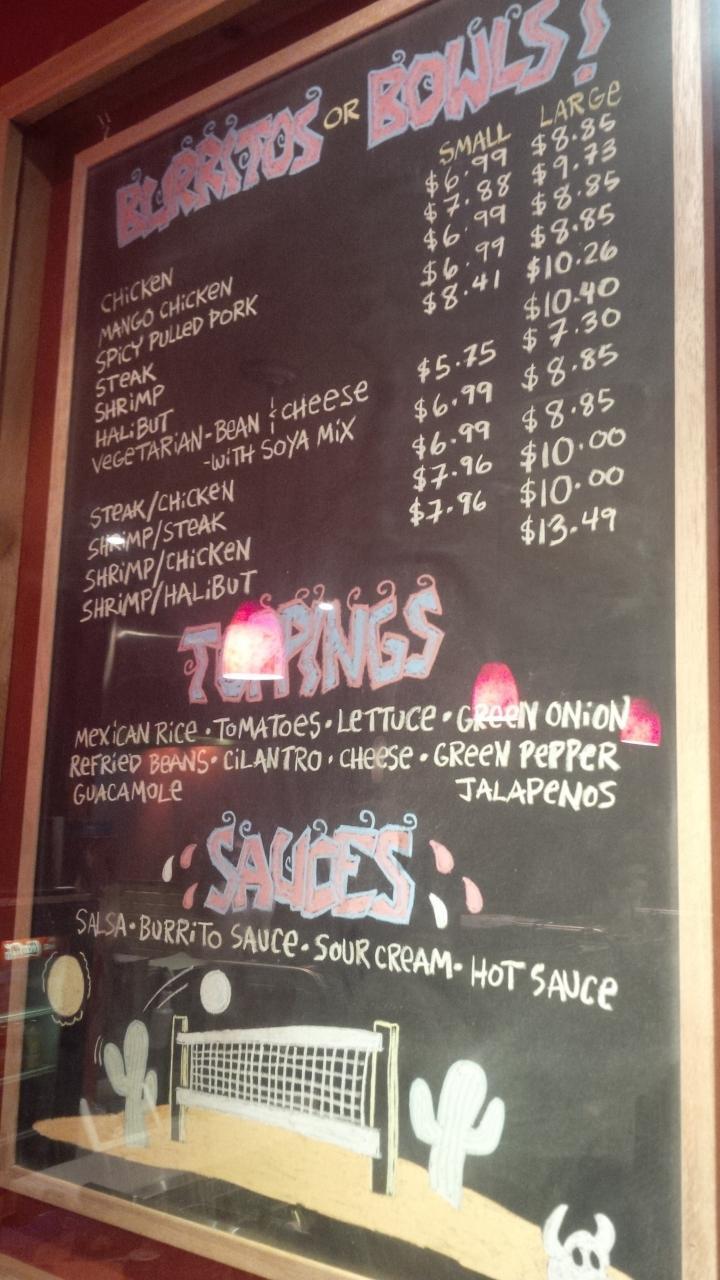 BURRITOS OR BOWLS!
SMALL LARGE
CHICKEN $6.99 $8.85
MANGO CHICKEN $7.88 $9.73
SPICY PULLED PORK $6.99 $8.85
STEAK $6.99 $8.85
SHRIMP $8.41 $10.26
HALIBUT $10.40
VEGETARIAN-BEAN & CHEESE $5.75 $7.30
-WITH SOYA MIX $6.99 $8.85
STEAK/CHICKEN $6.99 $8.85
SHRIMP/STEAK $7.96 $10.00
SHRIMP/CHICKEN $7.96 $10.00
SHRIMP/HALIBUT $13.49
TOPPINGS
MEXICAN RICE · TOMATOES · LETTUCE · GREEN ONION
REFRIED BEANS · CILANTRO · CHEESE · GREEN PEPPER
GUACAMOLE JALAPENOS
SAUCES
SALSA · BURRITO SAUCE · SOUR CREAM · HOT SAUCE